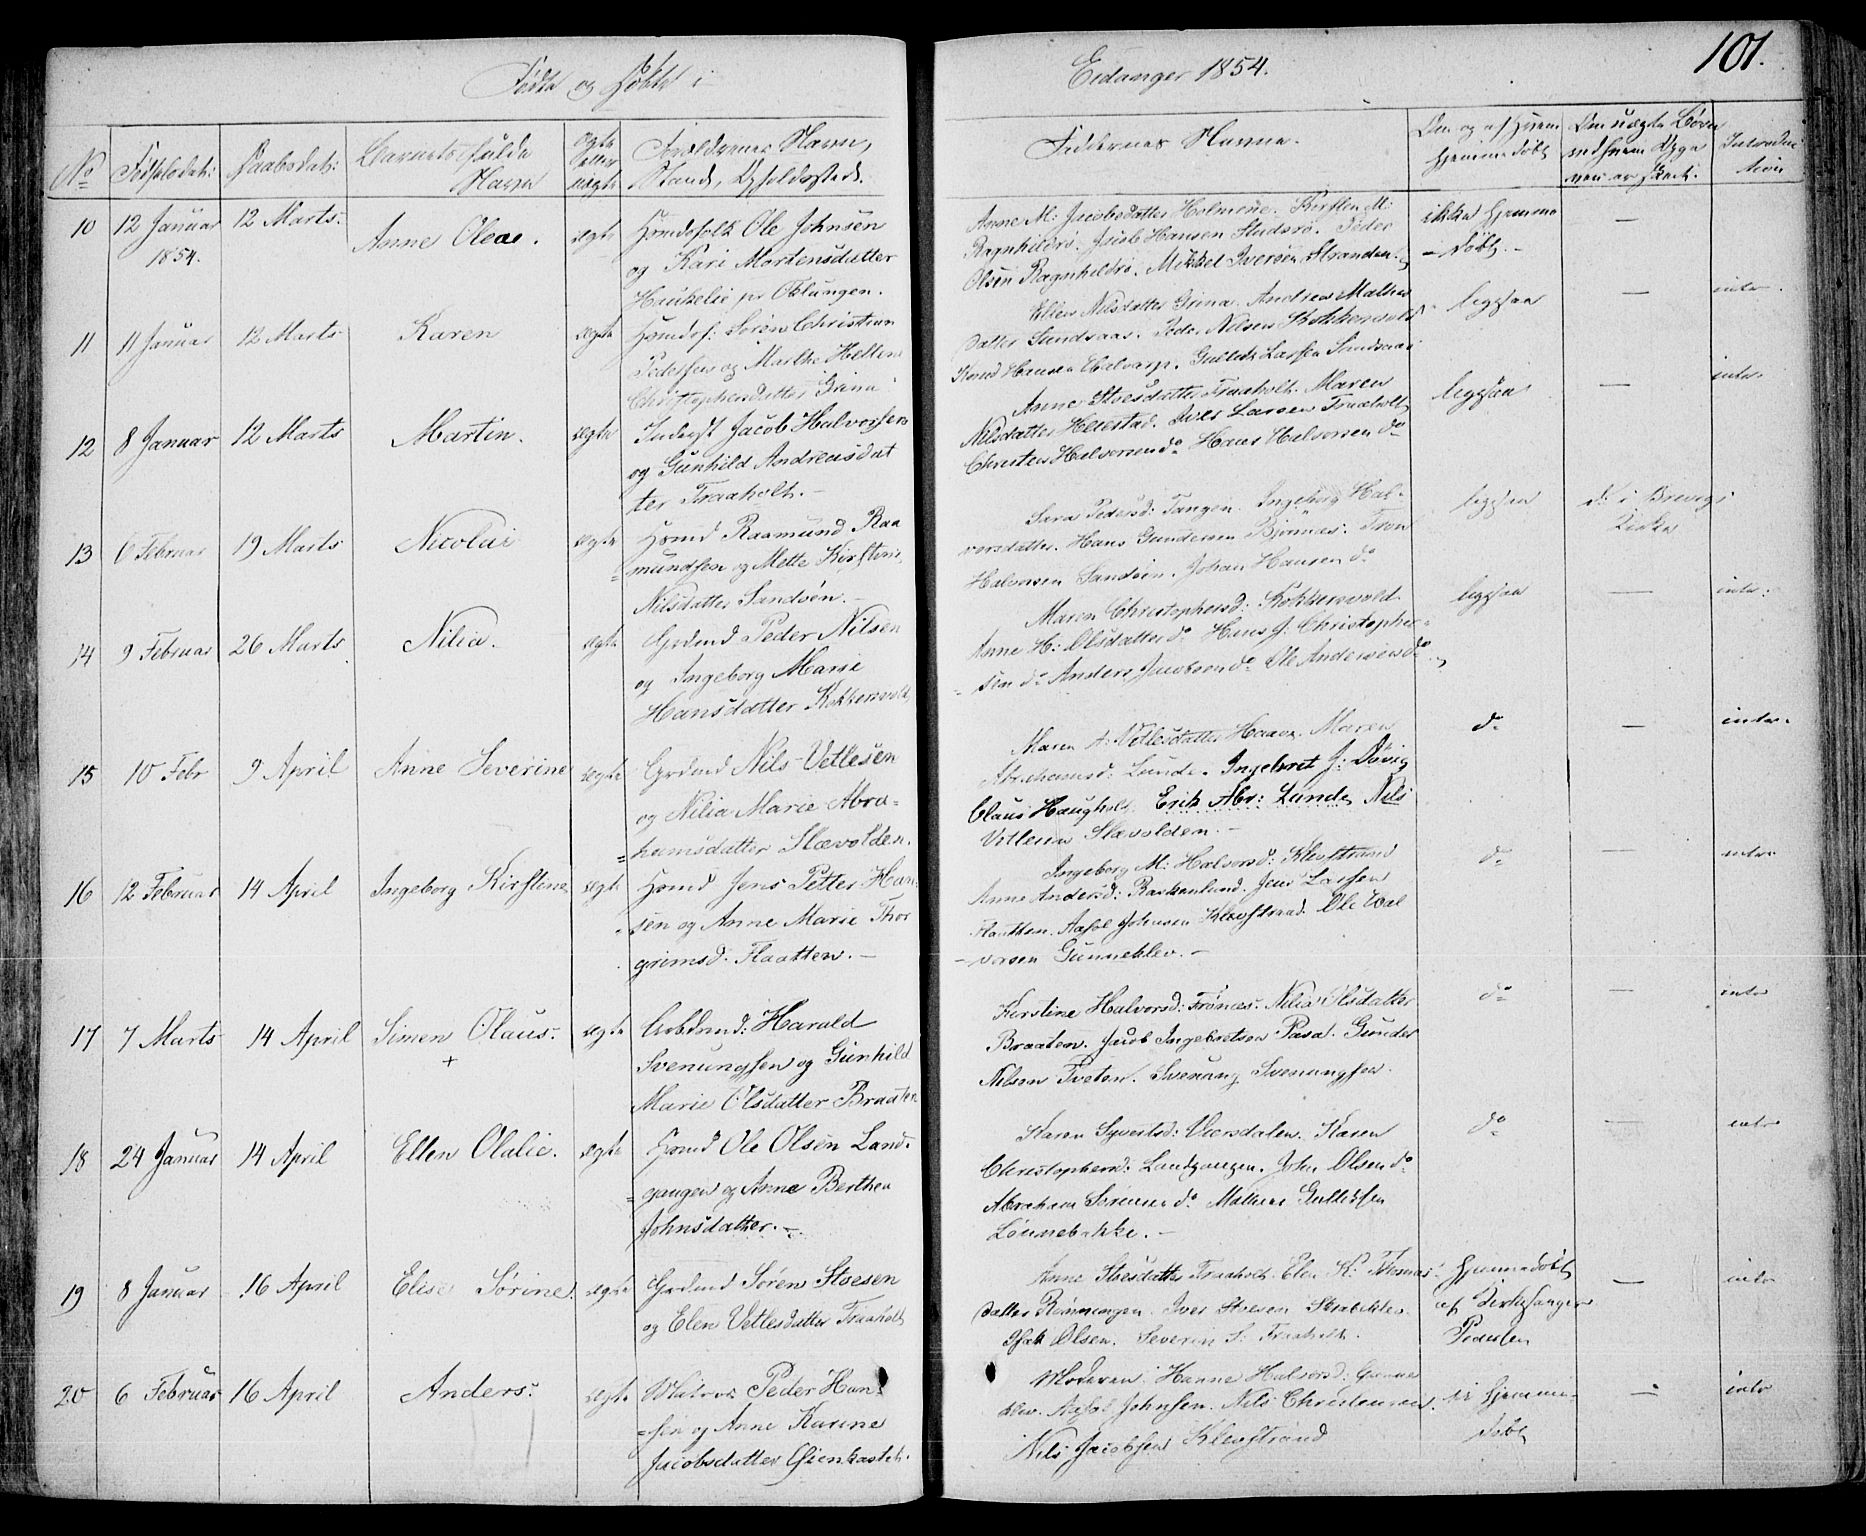 Fødte og Døbte i
Eidanger 1854.
101.
No
Fødselsdat:
Daabsdat:
Barnets fulde Navn
Ægte eller uægte
Forældrenes Navn, Stand, Opholdssted.
Faddernes Navne.
Om og af hvem hjemmedøbt
Introduc tion
10 12 Januar 1854. 12 Marts. Anne Olea. ægte
Huusfolk Ole Johnsen
og Kari Mortensdatter
Haukelie pr Oklungen.
Anne M: Jacobsdatter Holmene. Kirsten M:
Ragnhildrø. Jacob Hansen Studsrø. Peder
Olsen Ragnhildrø. Mikkel Iversen Stranden.
ikke hjemme
døbt. –
11 11 Januar 12 Marts Karen ægte
Huusf: Søren Christian
Pedersen og Marthe Hellene
Christophersdatter Grina
Ellen Nilsdatter Grina. Andrea Mathis
datter Sundsaas. Peder Nilsen Kokkersvold
Knud Hansen Halvarp. Gullik Larsen Sundsaas
ligesaa
intr.
12 8 Januar 12 Marts Martin. ægte
Inderst Jacob Halvorsen
og Gunhild Andreasdat
ter Traaholt. –
Anne Stoesdatter Traaholt. Maren
Nilsdatter Heiestad. Iver Larsen Traaholt
Christen Halvorsen do Hans Halvorsen do
ligesaa
intr.
13 6 Februar 19 Marts Nicolai ægte
Huusmd Raamund Raa
mundsen og Mette Kirstine
Nilsdatter Sandøen. –
Sara Pedersd: Tangen. Ingeborg Hal-
vorsdatter. Hans Gundersen Bjønnes. Tron
Halvorsen Sandøen. Johan Hansen do
ligesaa
d: i Brevigs
Kirke
14 9 Februar 26 Marts Nilia. ægte
Grdmd Peder Nilsen
og Ingeborg Marie
Hansdatter Kokkersvold
Maren Christophersd: Kokkersvold.
Anne H: Olsdatter do Hans J: Christopher-
sen do Anders Jacobsen do Ole Andersen do
ligesaa
intr.
15 10 Febr 9 April Anne Severine ægte
Grdmd Nils Vetlesen
og Nilia Marie Abra-
hamsdatter Slævolden.
Maren A: Vetlesdatter Haave. Maren
Abrahamsd: Lunde. Ingebret J: Døvig
Claus Haugholt. Erik Abr: Lunde, Nils
Vetlesen Slævolden. –
do
intr.
16 12 Februar 14 April Ingeborg Kirstine ægte
Huusmd Jens Petter Han
sen og Anne Marie Thor
grimsd. Flaatten. –
Ingeborg M: Halvorsd: Klevstrand
Anne Andersd: Raskenlund. Jens Larsen
Flaatten. Axsel Johnsen Klevstrand. Ole Hal
vorsen Gunneklev. –
do
intr
17 7 Marts 14 April Simen Olaus. ægte
+
Arbdmd: Harald
Svenungsen og Gunhild
Marie Olsdatter Braaten
Kirstine Halvorsd: Frønes. Nilia Olsdatter
Braaten. Jacob Ingebretsen Pasa. Gunder
Nilsen Tveten. Svenung Svenungsen.
do
intr
18 24 Januar 14 April Ellen Olalie. ægte
Huusmd Ole Olsen Land-
gangen og Anne Berthea
Johnsdatter. –
Karen Syvertsd: Versdalen. Karen
Christophersd. Landgangen. John Olsen do
Abraham Sørensen do Mathias Gulliksen
Lønnebakke. –
do
intr
19 8 Januar 16 April Elise Sørine. ægte
Grdmd Søren Stoesen
og Elen Vetlesdatter Traaholt
Anne Stoesdatter Traaholt. Elen K: Thomas
datter Rønningen. Iver Stoesen
Isak Olsen. Severin S: Traaholt.
Hjemmedøbt
af Kirkesanger
intr
20 6 Februar 16 April Anders. ægte
Matros Peder Han-
sen og Anne Karine
Jacobsdatter Osienkastet.
Moderen. Hanne Halvorsd: Gunne
klev. Axsel Johnsen. Nils Christensen.
Nils Jacobsen Klevstrand
ei hjemme-
døbt
intr